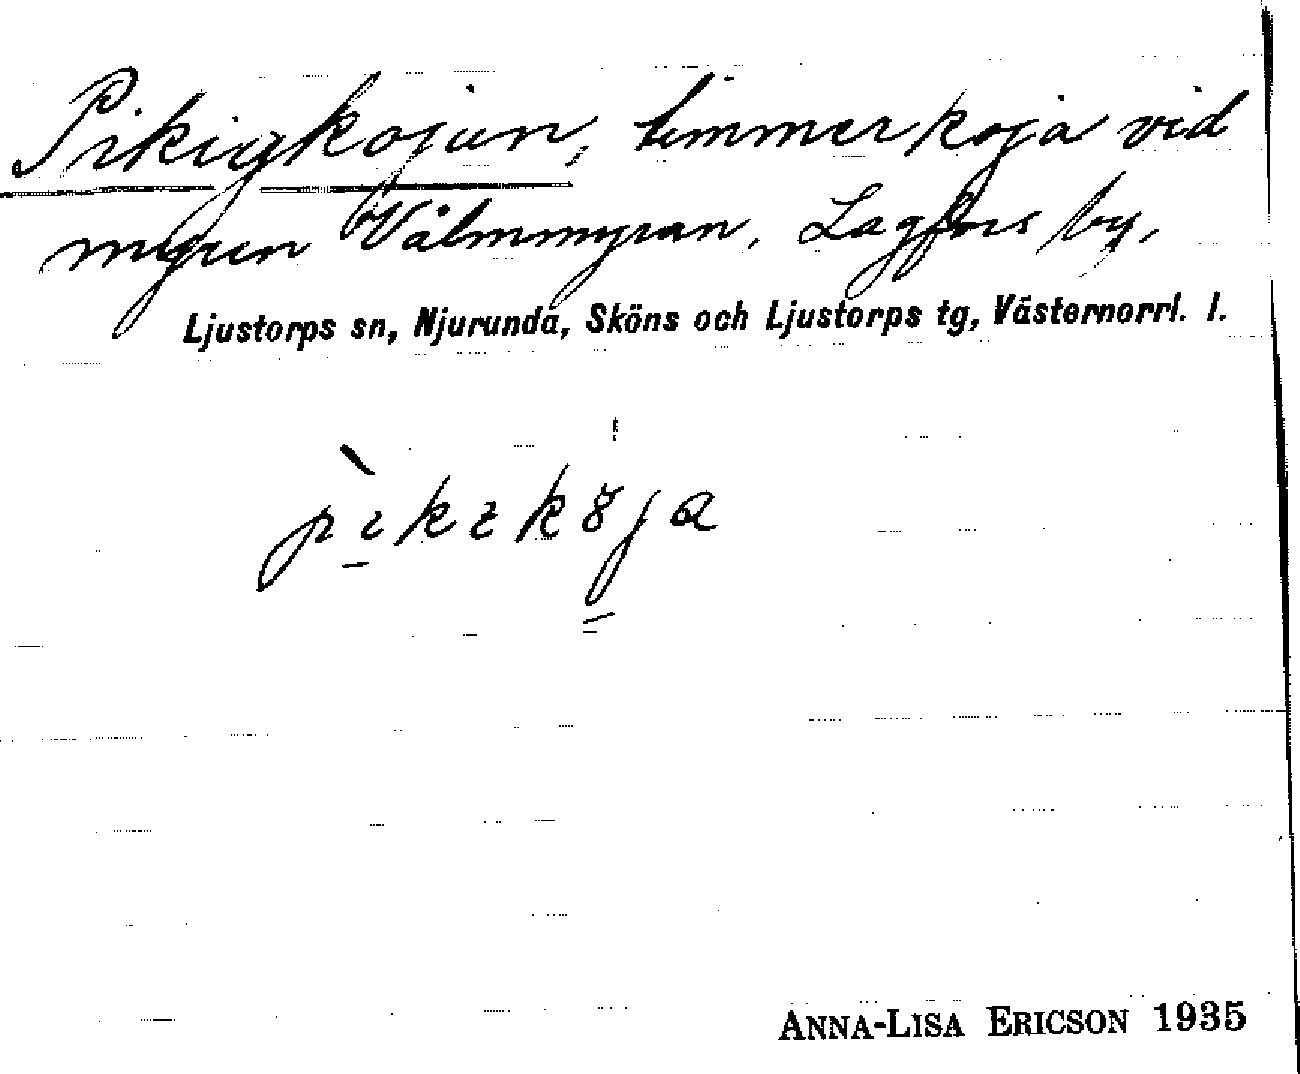 Pikigkojan, timmerkoja vid
myren Vålmmyran, Lagfors by,
Ljustorps sn, Njurunda, Sköns och Ljustorps tg, Västernorrl. l.
ANNA-LISA ERICSON 1935